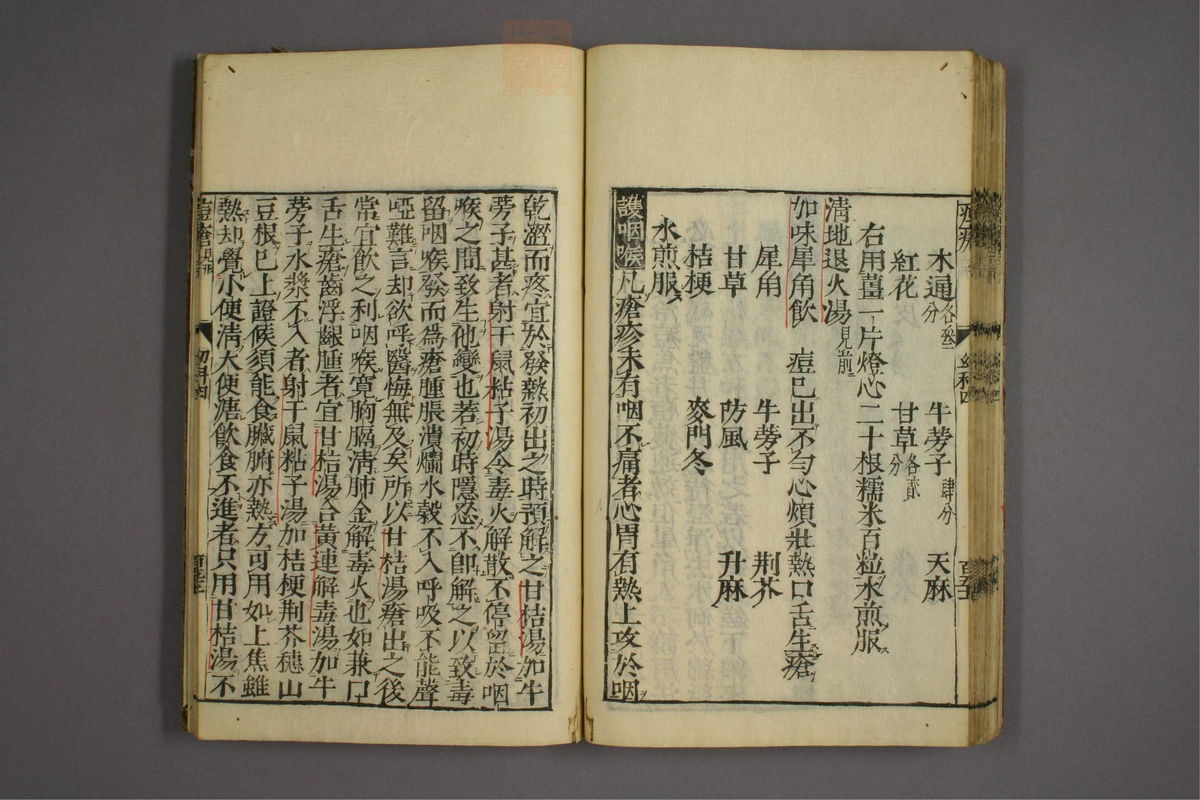 木通各叁分　牛蒡子肆分　天麻
紅花　甘草各貳分
右用薑一片燈心二十根糯米百粒水煎服
清地退火湯見前
加味犀角飲　痘已出不勻心煩壯熱口舌生瘡
犀角　牛蒡子　荆芥
甘草　防風　升麻
桔梗　麥門冬
水煎服
護咽喉凡瘡疹未有咽不痛者心胃有熱上攻於咽
乾澀而疼宜於發熱初出之時預解之甘桔湯加牛
蒡子甚者射干鼠粘子湯令毒火解散不停留於咽
喉之間致生他變也若初時隱忍不即解之以致毒
留咽喉發而爲瘡腫脹潰爛水穀不入呼吸不能聲
啞難言却欲呼醫悔無及矣所以甘桔湯瘡出之後
常宜飲之利咽喉寬胸膈清肺金解毒火也如兼口
舌生瘡齒浮齦腫者宜甘桔湯合黃連解毒湯加牛
蒡子水漿不入者射干鼠粘子湯加桔梗荆芥穗山
豆根已上證候須能食臟腑亦熱方可用如上焦雖
熱却覺小便清大便溏飲食不進者只用甘桔湯不
痘瘡
幼科四